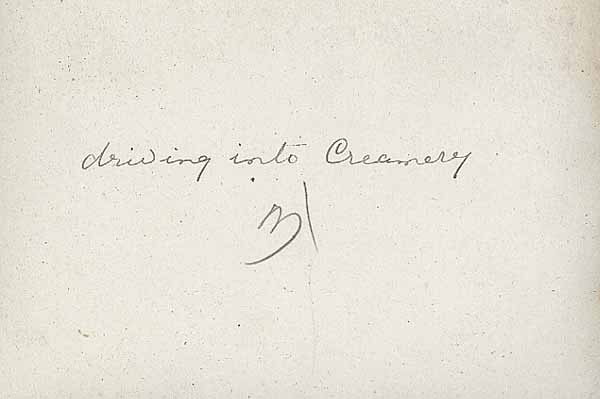 driving into Creamery